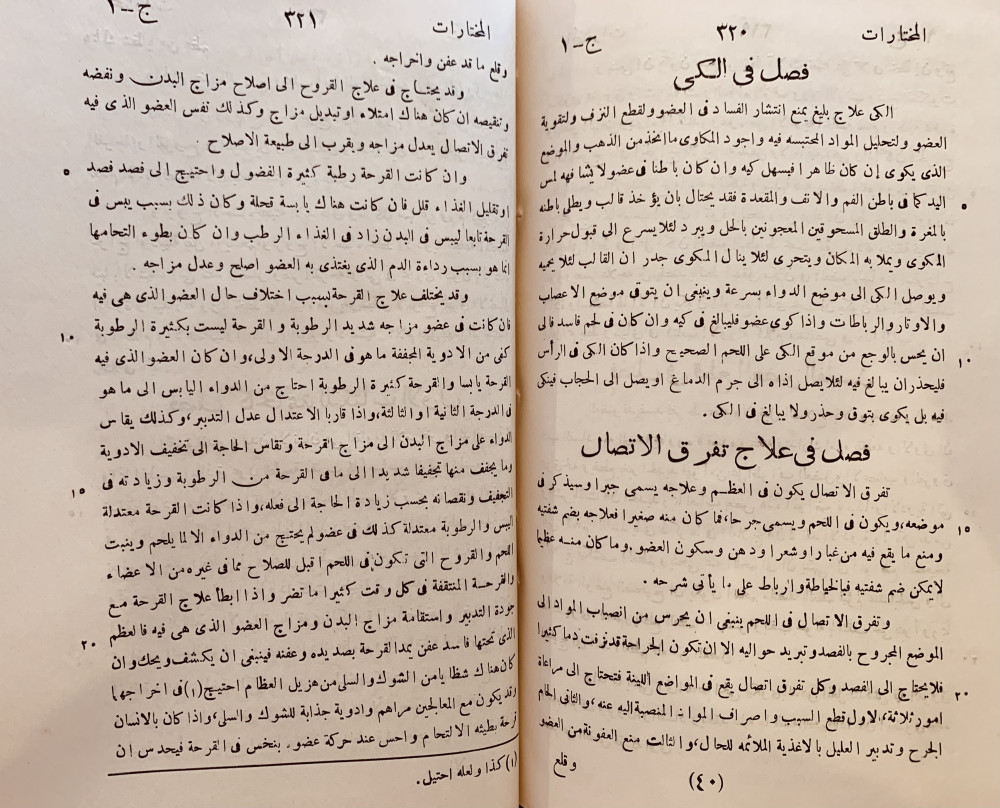 المختارات
٣٢٠
ج-١
فصل في الكي
الكي علاج بليغ يمنع إنتشار الفساد في العضو ولقطع النزف ولتقوية
العضو ولتحليل المواد المحتبسه فيه واجود المكاوى ما اتخذ من الذهب والموضع
الذى يكوى إن كان ظاهرا فيسهل كيه وان كان باطنا فى عضو لا يشافهه لمس
اليد كما فى باطن الفم والانف والمقعدة فقد يحتال بان يؤخذ قالب ويطلى باطنه
بالمغرة والطلق المسحوقين المعجونين بالخل ويبرد لئلا يسرع الى قبول حرارة
المكوى ويملا به المكان ويتحرى لئلا ينال المكوى جدران القالب لئلا يحميه
ويوصل الكى الى موضع الدواء بسرعة وينبغى ان يتوقى موضع الاعصاب
والاوتار والرباطات واذا كوى عضو فليبالغ فى كيه وان كان فى لحم فاسد فالى
ان يحس بالوجع من موقع الكى على اللحم الصحيح واذا كان الكى فى الرأس
١٠
فليحذر ان يبالغ فيه لئلا يصل اذاه الى جرم الدماغ او يصل الى الحجاب فينكى
فيه بل يكوى بتوق وحذر ولا يبالغ فى الكى .
فصل فى علاج تفرق الاتصال
تفرق الاتصال يكون فى العظم وعلاجه يسمى جبرا وسيذكر فى
موضعه، ويكون فى اللحم ويسمى جرحا، فما كان منه صغيرا فعلاجه بضم شفتيه
١٥
ومنع ما يقع فيه من غبار او شعر او دهن وسكون العضو. وما كان منه عظيما
لايمكن ضم شفتيه فبالخياطة وارباط على ما يأتى شرحه .
وتفرق الاتصال فى اللحم ينبغى ان يحرس من انصباب المواد الى
الموضع المجروح بالفصد وتبريد حواليه الا ان تكون الجراحة قد نزفت دما كثيرا
فلا يحتاج الى الفصد وكل تفرق اتصال يقع فى المواضع اللينة فتحتاج الى مراعاة
٢٠
امور ثلاثة، لاول قطع السبب واصراف المواد المنصبة اليه عنه، والثانى الحام
الجرح وتدبير العليل بالاغذية الملائمه للحال، والثالث منع العفونة من العضو
وقلع
(٤٠)
المختارات
٣٢١
ج-١
وقلع ما قد عفن واخراجه .
وقد يحتاج فى علاج القروح الى اصلاح مزاج البدن ونفضه
وتنقيصه ان كان هناك إمتلاء او تبديل مزاج وكذلك نفس العضو الذى فيه
تفرق الاتصال يعدل مزاجه ويقرب الى طبيعة الاصلاح .
وان كانت القرحة رطبة كثيرة الفضول واحتيج الى فصد فصد
٥
او تقليل الغذاء قلل فان كانت هناك يابسة قحلة وكان ذلك بسبب يبس فى
القرحة تابعا ليبس فى البدن زاد فى الغذاء الرطب وان كان بطوء التحامها
إنما هو بسبب رداءة الدم الذى يغتذى به العضو اصلح وعدل مزاجه .
وقد يختلف علاج القرحة بسبب اختلاف حال العضو الذى هى فيه
فان كانت فى عضو مزاجه شديد الرطوبة والقرحة ليست بكثيرة الرطوبة
١٠
كفى من الادوية المجففة ما هو فى الدرجة الاولى، وان كان العضو الذى فيه
القرحة يابسا والقرحة كثيرة الرطوبة احتاج من الدواء اليابس الى ما هو
فى الدرجة الثانية او الثالثة، واذا قاربا الاعتدال عدل التدبير، وكذلك يقاس
الدواء على مزاج البدن الى مزاج القرحة وتقاس الحاجة الى تخفيف الادوية
وما يجفف منها تجفيفا شديدا الى ما فى القرحة من الرطوبة وزيادته فى
١٥
التجفيف ونقصانه بحسب زيادة الحاجة الى فعله، واذا كانت القرحة معتدلة
اليبس والرطوبة معتدلة كذلك فى عضو لم يحتج من الدواء الا لما يلحم وينبت
اللحم والقروح التى تكون فى اللحم اقبل للصلاح مما فى غيره من الاعضاء
والقرحة المنتقفة فى كل وقت كثيرا ما تضر واذا ابطأ علاج القرحة مع
جودة التدبير واستقامة مزاج البدن ومزاج العضو الذى هى فيه فالعظم
٢٠
الذى تحتها فاسد عفن يمد القرحة بصديده وعفنه فينبغى ان يكشف ويحك وان
كان هناك شظايا من الشوك والسلى من هزيل العظام احتيج (١) فى اخراجها
وقد يكون مع المعالجين مراهم وادوية جذابة للشوك والسلى، واذا كان بالانسان
قرحة بطيئه الالتحام واحس عند حركة عضو بنخس فى القرحة فيحدس ان
(١) كذا ولعله احتيل .